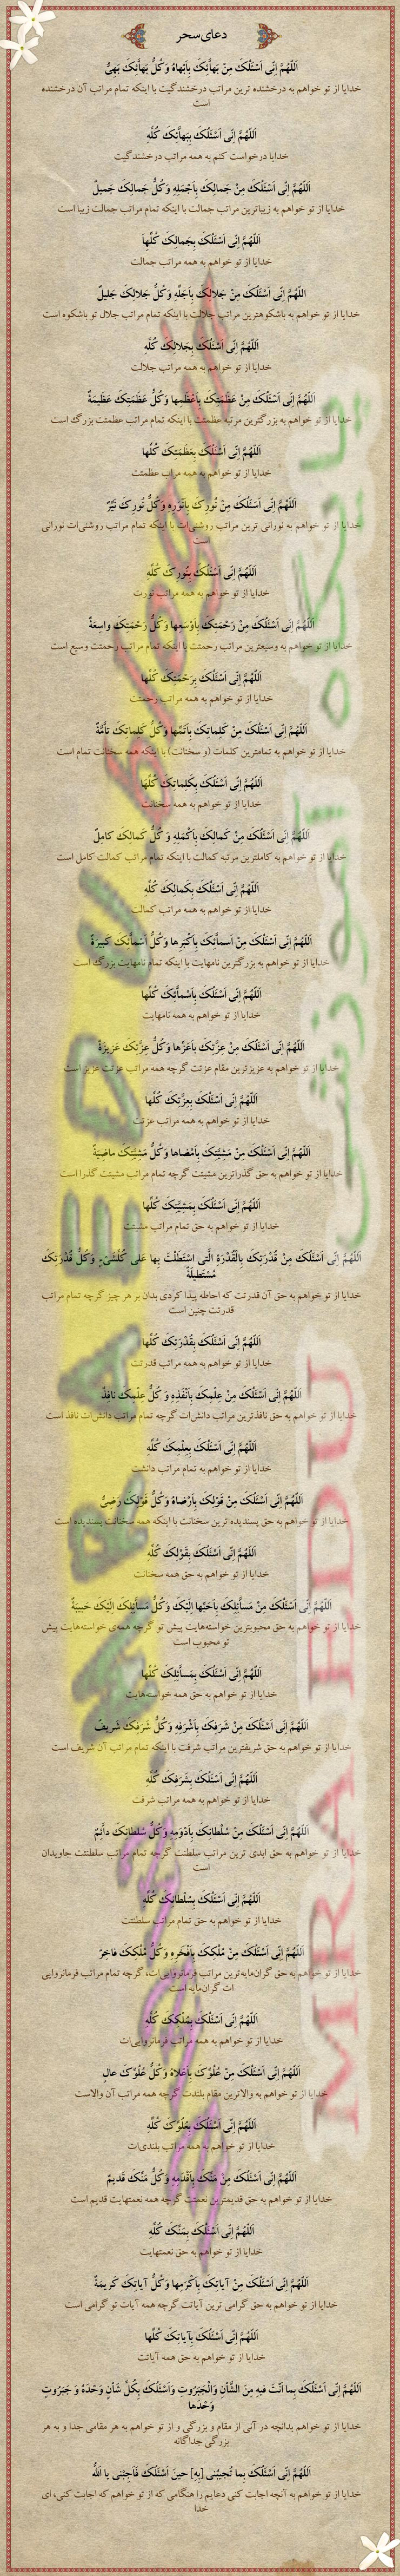 دعای سحر
اَللّهُمَّ اِنّی اَسْئَلُکَ مِنْ بَهآئِکَ بِاَبْهاهُ وَکُلُّ بَهآئِکَ بَهِیٌّ
خدایا از تو خواهم به درخشنده ترین مراتب درخشندگیت با اینکه تمام مراتب آن درخشنده
است
اَللّهُمَّ اِنّی اَسْئَلُکَ بِبَهآئِکَ کُلِّهِ
خدایا درخواست کنم به همه مراتب درخشندگیت
اَللّهُمَّ اِنّی اَسْئَلُکَ مِنْ جَمالِکَ بِاَجْمَلِهِ وَکُلُّ جَمالِکَ جَمیلٌ
خدایا از تو خواهم به زیباترین مراتب جمالت با اینکه تمام مراتب جمالت زیبا است
اَللّهُمَّ اِنّی اَسْئَلُکَ بِجَمالِکَ کُلِّها
خدایا از تو خواهم به همه مراتب جمالت
اَللّهُمَّ اِنّی اَسْئَلُکَ مِنْ جَلالِکَ بِاَجَلِّهِ وَکُلُّ جَلالِکَ جَلیلٌ
خدایا از تو خواهم به باشکوهترین مراتب جلالت با اینکه تمام مراتب جلال تو باشکوه است
اَللّهُمَّ اِنّی اَسْئَلُکَ بِجَلالِکَ کُلِّهِ
خدایا از تو خواهم به همه مراتب جلالت
اَللّهُمَّ اِنّی اَسْئَلُکَ مِنْ عَظَمَتِکَ بِاَعْظَمِها وَکُلُّ عَظَمَتِکَ عَظیمَةٌ
خدایا از تو خواهم به بزرگترین مرتبه عظمتت با اینکه تمام مراتب عظمتت بزرگ است
اَللّهُمَّ اِنّی اَسْئَلُکَ بِعَظَمَتِکَ کُلِّها
خدایا از تو خواهم به همه مراتب عظمتت
اَللّهُمَّ اِنّی اَسْئَلُکَ مِنْ نُورِکَ بِاَنْوَرِهِ وَکُلُّ نُورِکَ نَیِّرٌ
خدایا از تو خواهم به نورانی ترین مراتب روشنی‌ات با اینکه تمام مراتب روشنی‌ات نورانی
است
اَللّهُمَّ اِنّی اَسْئَلُکَ بِنُورِکَ کُلِّهِ
خدایا از تو خواهم به همه مراتب نورت
اَللّهُمَّ اِنّی اَسْئَلُکَ مِنْ رَحْمَتِکَ بِاَوْسَعِها وَکُلُّ رَحْمَتِکَ واسِعَةٌ
خدایا از تو خواهم به وسیعترین مراتب رحمتت با اینکه تمام مراتب رحمتت وسیع است
اَللّهُمَّ اِنّی اَسْئَلُکَ بِرَحْمَتِکَ کُلِّها
خدایا از تو خواهم به همه مراتب رحمتت
اَللّهُمَّ اِنّی اَسْئَلُکَ مِنْ کَلِماتِکَ بِاَتَمِّها وَکُلُّ کَلِماتِکَ تآمَّةٌ
خدایا از تو خواهم به تمامترین کلمات (و سخنانت) با اینکه همه سخنانت تمام است
اَللّهُمَّ اِنّی اَسْئَلُکَ بِکَلِماتِکَ کُلِّهَا
خدایا از تو خواهم به همه سخنانت
اَللّهُمَّ اِنّی اَسْئَلُکَ مِنْ کَمالِکَ بِاَکْمَلِهِ وَ کُلُّ کَمالِکَ کامِلٌ
خدایا از تو خواهم به کاملترین مرتبه کمالت با اینکه تمام مراتب کمالت کامل است
اَللّهُمَّ اِنّی اَسْئَلُکَ بِکَمالِکَ کُلِّهِ
خدایا از تو خواهم به همه مراتب کمالت
اَللّهُمَّ اِنّی اَسْئَلُکَ مِنْ اَسمآئِکَ بِاَکْبَرِها وَکُلُّ اَسْمآئِکَ کَبیرَةٌ
خدایا از تو خواهم به بزرگترین نامهایت با اینکه تمام نامهایت بزرگ است
اَللّهُمَّ اِنّی اَسْئَلُکَ بِاَسْمآئِکَ کُلِّها
خدایا از تو خواهم به همه نامهایت
اَللّهُمَّ اِنّی اَسْئَلُکَ مِنْ عِزَّتِکَ بِاَعَزِّها وَکُلُّ عِزَّتِکَ عَزیزَةٌ
خدایا از تو خواهم به عزیزترین مقام عزتت گرچه همه مراتب عزتت عزیز است
اَللّهُمَّ اِنّی اَسْئَلُکَ بِعِزَّتِکَ کُلِّها
خدایا از تو خواهم به همه مراتب عزتت
اَللّهُمَّ اِنّی اَسْئَلُکَ مِنْ مَشِیَّتِکَ بِاَمْضاها وَکُلُّ مَشِیَّتِکَ ماضِیَةٌ
خدایا از تو خواهم به حق گذراترین مشیتت گرچه تمام مراتب مشیتت گذرا است
اَللّهُمَّ اِنّی اَسْئَلُکَ بِمَشِیَّتِکَ کُلِّها
خدایا از تو خواهم به حق تمام مراتب مشیتت
اَللّهُمَّ اِنّی اَسْئَلُکَ مِنْ قُدْرَتِکَ بِالْقُدْرَةِ الَّتی اسْتَطَلْتَ بِها عَلی کُلِّشَیْءٍ وَکُلُّ قُدْرَتِکَ
مُسْتَطیلَةٌ
خدایا از تو خواهم به حق آن قدرتت که احاطه پیدا کردی بدان بر هر چیز گرچه تمام مراتب
قدرتت چنین است
اَللّهُمَّ اِنّی اَسْئَلُکَ بِقُدْرَتِکَ کُلِّها
خدایا از تو خواهم به همه مراتب قدرتت
اَللّهُمَّ اِنّی اَسْئَلُکَ مِنْ عِلْمِکَ بِاَنْفَذِهِ وَ کُلُّ عِلْمِکَ نافِذٌ
خدایا از تو خواهم به حق نافذترین مراتب دانش‌ات گرچه تمام مراتب دانش‌ات نافذ است
اَللّهُمَّ اِنّی اَسْئَلُکَ بِعِلْمِکَ کُلِّهِ
خدایا از تو خواهم به همه مراتب دانشت
اَللّهُمَّ اِنّی اَسْئَلُکَ مِنْ قَوْلِکَ بِاَرْضاهُ وَکُلُّ قَوْلِکَ رَضِیٌّ
خدایا از تو خواهم به حق پسندیده ترین سخنانت با اینکه همه سخنانت پسندیده است
اَللّهُمَّ اِنّی اَسْئَلُکَ بِقَوْلِکَ کُلِّهِ
خدایا از تو خواهم به حق همه سخنانت
اَللّهُمَّ اِنّی اَسْئَلُکَ مِنْ مَسآئِلِکَ بِاَحَبِّها اِلَیْکَ وَکُلُّ مَسآئِلِکَ اِلَیْکَ حَبیبَةٌ
خدایا از تو خواهم به حق محبوبترین خواسته‌هایت پیش تو گرچه همه‌ی خواسته‌هایت پیش
تو محبوب است
اَللّهُمَّ اِنّی اَسْئَلُکَ بِمَسآئِلِکَ کُلِّها
خدایا از تو خواهم به حق همه خواسته‌هایت
اَللّهُمَّ اِنّی اَسْئَلُکَ مِنْ شَرَفِکَ بِاَشْرَفِهِ وَکُلُّ شَرَفِکَ شَریفٌ
خدایا از تو خواهم به حق شریفترین مراتب شرفت با اینکه تمام مراتب آن شریف است
اَللّهُمَّ اِنّی اَسْئَلُکَ بِشَرَفِکَ کُلِّهِ
خدایا از تو خواهم به همه مراتب شرفت
اَللّهُمَّ اِنّی اَسْئَلُکَ مِنْ سُلْطانِکَ بِاَدْوَمِهِ وَکُلُّ سُلطانِکَ دآئِمٌ
خدایا از تو خواهم به حق ابدی ترین مراتب سلطنتت گرچه تمام مراتب سلطنتت جاویدان
است
اَللّهُمَّ اِنّی اَسْئَلُکَ بِسُلْطانِکَ کُلِّهِ
خدایا از تو خواهم به حق تمام مراتب سلطنتت
اَللّهُمَّ اِنّی اَسْئَلُکَ مِنْ مُلْکِکَ بِاَفْخَرِهِ وَکُلُّ مُلْکِکَ فاخِرٌ
خدایا از تو خواهم به حق گران‌مایه‌ترین مراتب فرمانروایی‌ات، گرچه تمام مراتب فرمانروایی
ات گران‌مایه است
اَللّهُمَّ اِنّی اَسْئَلُکَ بِمُلْکِکَ کُلِّهِ
خدایا از تو خواهم به همه مراتب فرمانروایی‌ات
اَللّهُمَّ اِنّی اَسْئَلُکَ مِنْ عُلُوِّکَ بِاَعْلاهُ وَکُلُّ عُلُوِّکَ عالٍ
خدایا از تو خواهم به والاترین مقام بلندت گرچه همه مراتب آن والاست
اَللّهُمَّ اِنّی اَسْئَلُکَ بِعُلُوِّکَ کُلِّهِ
خدایا از تو خواهم به همه مراتب بلندی‌ات
اَللّهُمَّ اِنّی اَسْئَلُکَ مِنْ مَنِّکَ بِاَقْدَمِهِ وَکُلُّ مَنِّکَ قَدیمٌ
خدایا از تو خواهم به حق قدیمترین نعمتت گرچه همه نعمتهایت قدیم است
اَللّهُمَّ اِنّی اَسْئَلُکَ بِمَنِّکَ کُلِّهِ
خدایا از تو خواهم به حق نعمتهایت
اَللّهُمَّ اِنّی اَسْئَلُکَ مِنْ آیاتِکَ بِاَکْرَمِها وَکُلُّ آیاتِکَ کَریمَةٌ
خدایا از تو خواهم به حق گرامی ترین آیاتت گرچه همه آیات تو گرامی است
اَللّهُمَّ اِنّی اَسْئَلُکَ بِآیاتِکَ کُلِّها
خدایا از تو خواهم به حق همه آیاتت
اَللّهُمَّ اِنّی اَسْئَلُکَ بِما اَنْتَ فیهِ مِنَ الشَّاْنِ وَالْجَبَرُوتِ وَاَسْئَلُکَ بِکُلِّ شَاْنٍ وَحْدَهُ وَ جَبَرُوتٍ
وَحْدَها
خدایا از تو خواهم بدانچه در آنی از مقام و بزرگی و از تو خواهم به هر مقامی جدا و به هر
بزرگی جداگانه
اَللّهُمَّ اِنّی اَسْئَلُکَ بِما تُجیبُنی [بِهِ] حینَ اَسْئَلُکَ فَاَجِبْنی یا اَللّهُ
خدایا از تو خواهم به آنچه اجابت کنی دعایم را هنگامی که از تو خواهم که اجابت کنی، ای
خدا
IMRAN HIDU